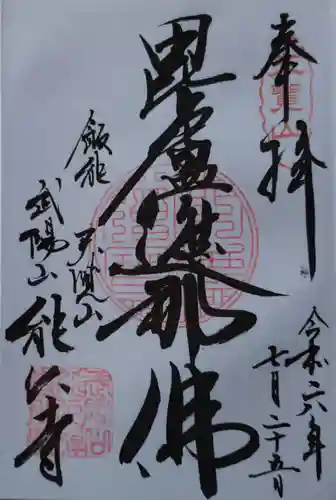 奉拝
令和六年
七月二十五日
毘盧遮那佛
飯能
天覧山
武陽山
能仁寺